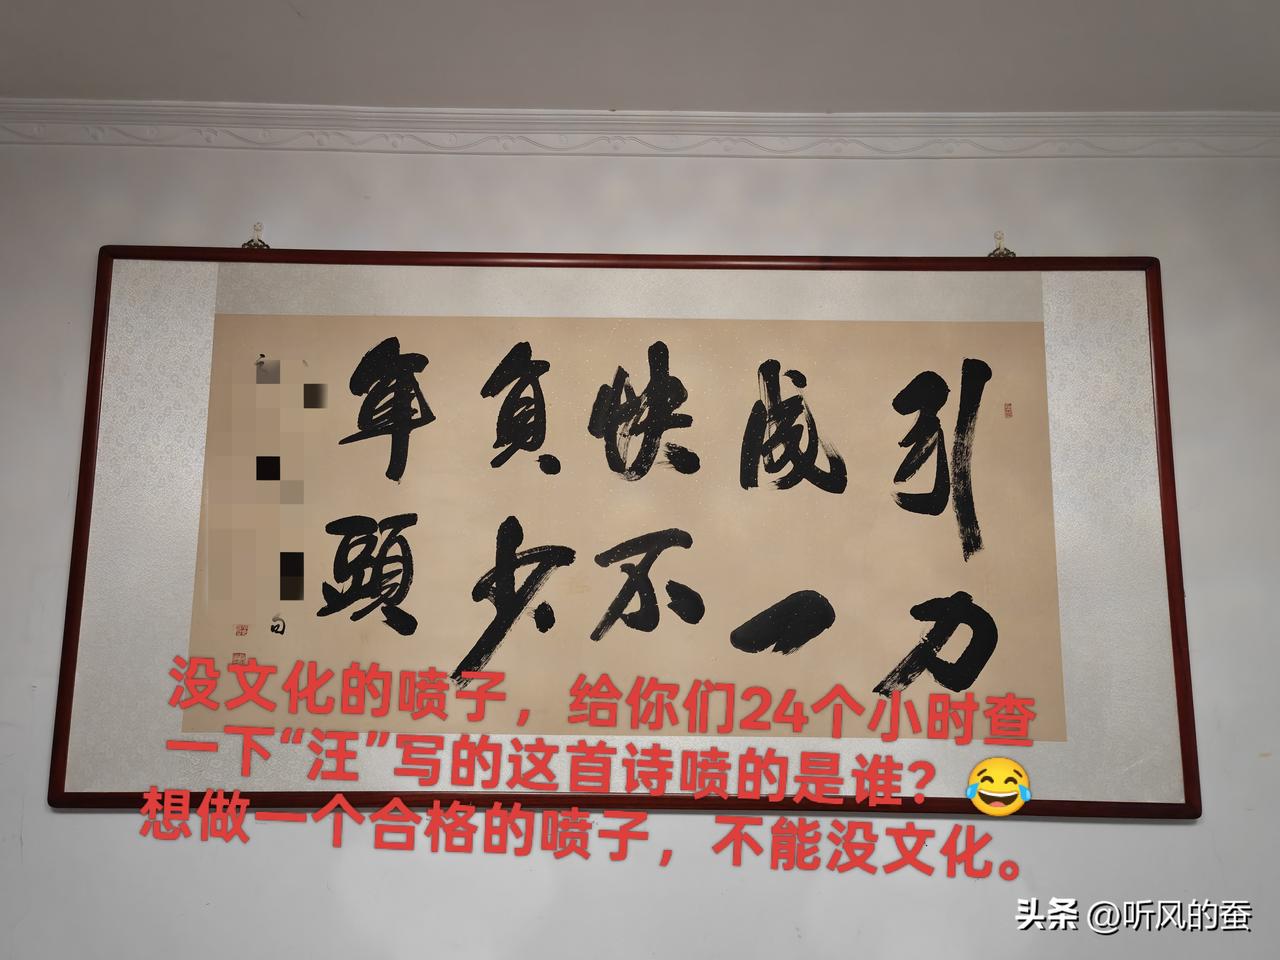 引刀
成一
快不
負少
年頭
没文化的喷子，给你们24个小时查
一下“汪”写的这首诗喷的是谁？😂
想做一个合格的喷子，不能没文化。
头条 @听风的蚕